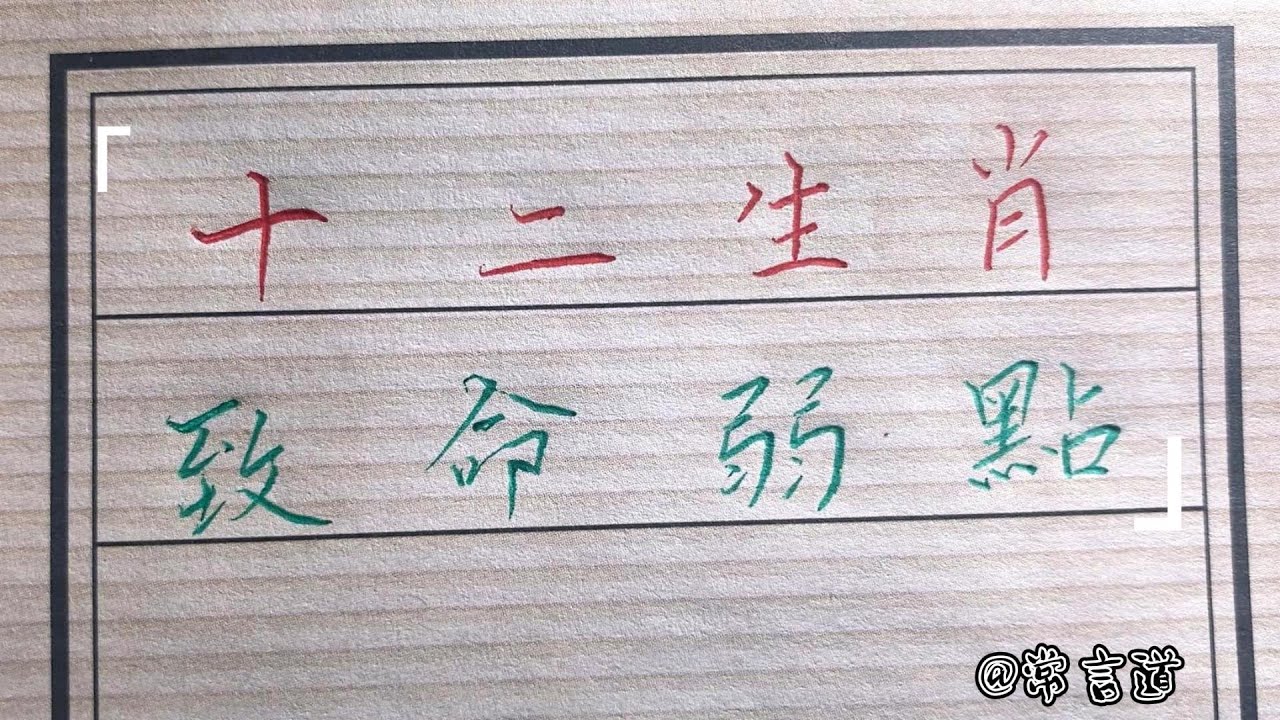 「十二生肖
致命弱點」
@常言道